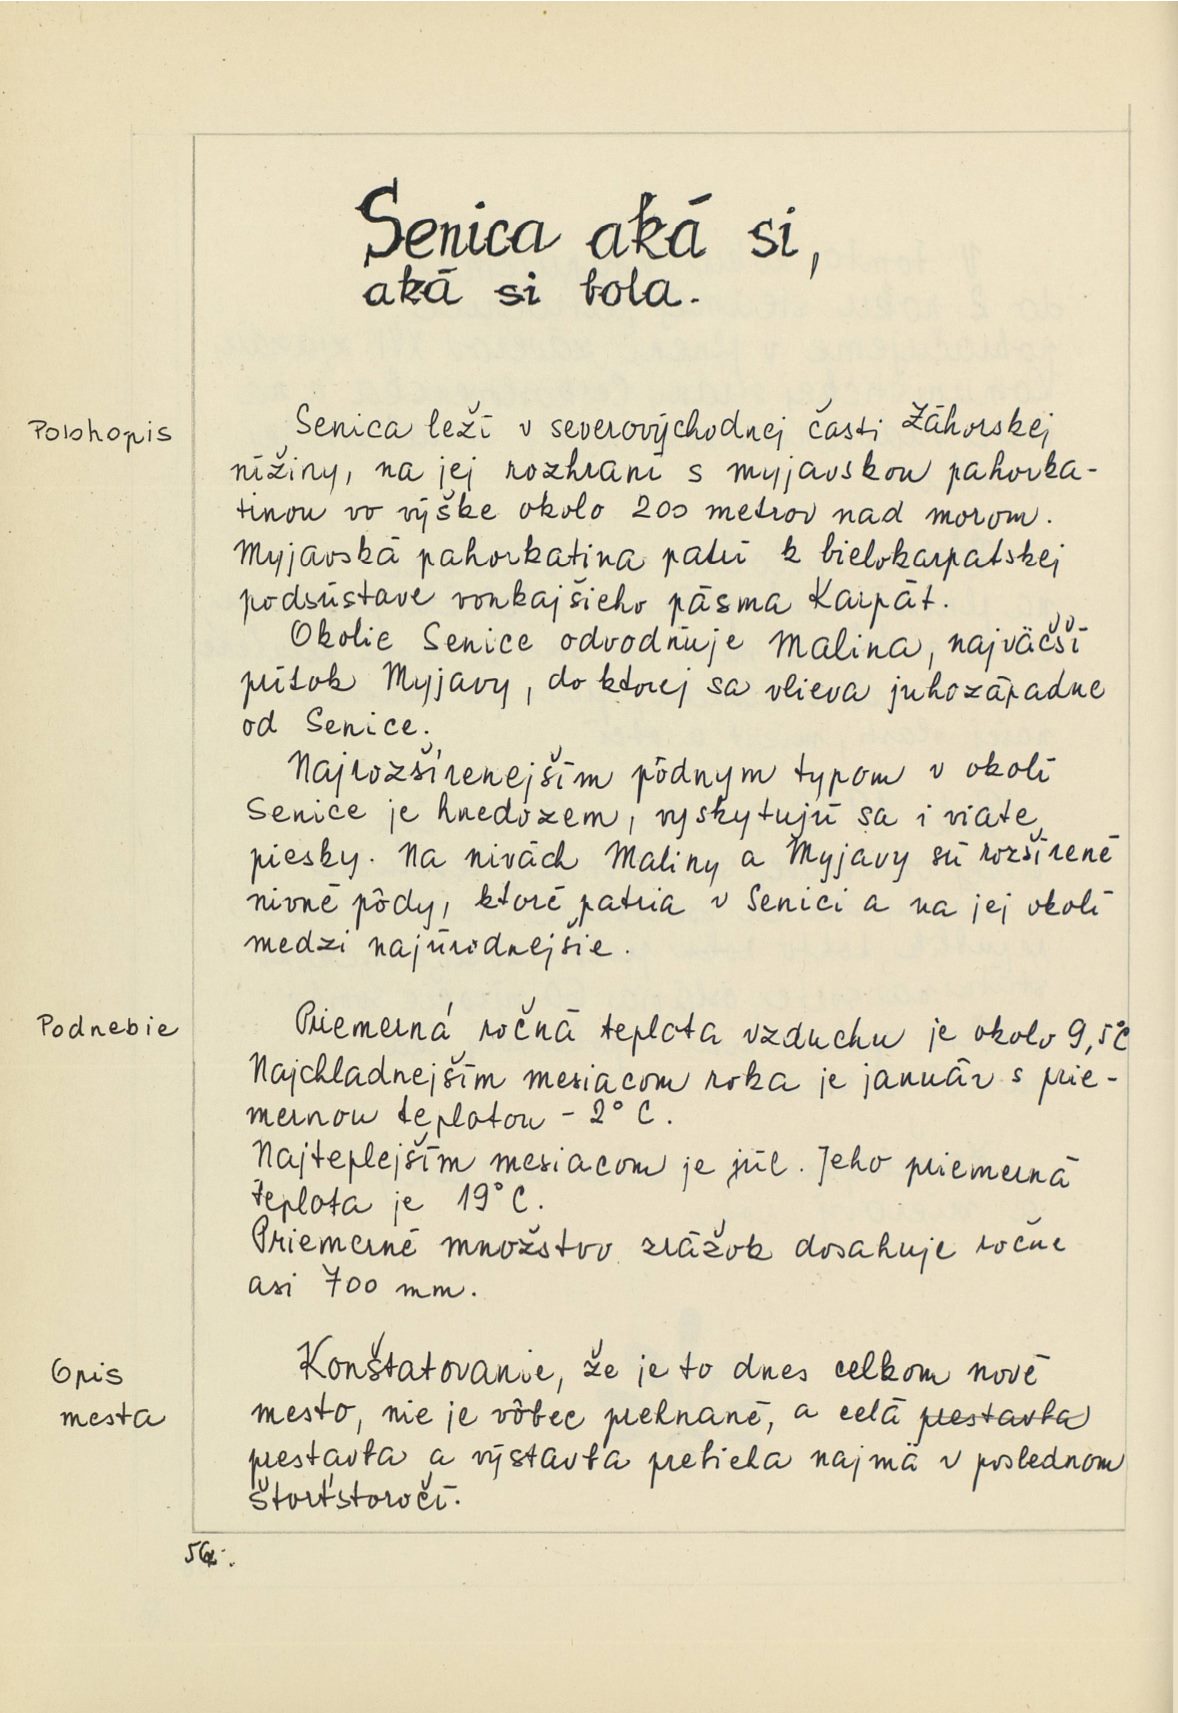 Senica aká si,
aká si bola.
Polohopis
Senica leží v severovýchodnej časti Záhorskej
nížiny, na jej rozhraní s myjavskou pahorka-
tinou vo výške okolo 200 metrov nad morom.
Myjavská pahorkatina patrí k bielokarpatskej
podsústave vonkajšieho pásma Karpát.
Okolie Senice odvodňuje Malina, najväčší
prítok Myjavy, do ktorej sa vlieva juhozápadne
od Senice.
Najrozšírenejším pôdnym typom v okolí
Senice je hnedozem, vyskytujú sa i viate
piesky. Na nivách Maliny a Myjavy sú rozšírené
nivné pôdy, ktoré patria v Senici a na jej okolí
medzi najúrodnejšie.
Podnebie
Priemerná ročná teplota vzduchu je okolo 9,5°C
Najchladnejším mesiacom roka je január s prie-
mernou teplotou - 2° C.
Najteplejším mesiacom je júl. Jeho priemerná
teplota je 19° C.
Priemerné množstvo zrážok dosahuje ročne
asi 700 mm.
Opis
mesta
Konštatovanie, že je to dnes celkom nové
mesto, nie je vôbec prehnané, a celá prestavba
prestavba a výstavba prebieha najmä v poslednom
štorťstoročí.